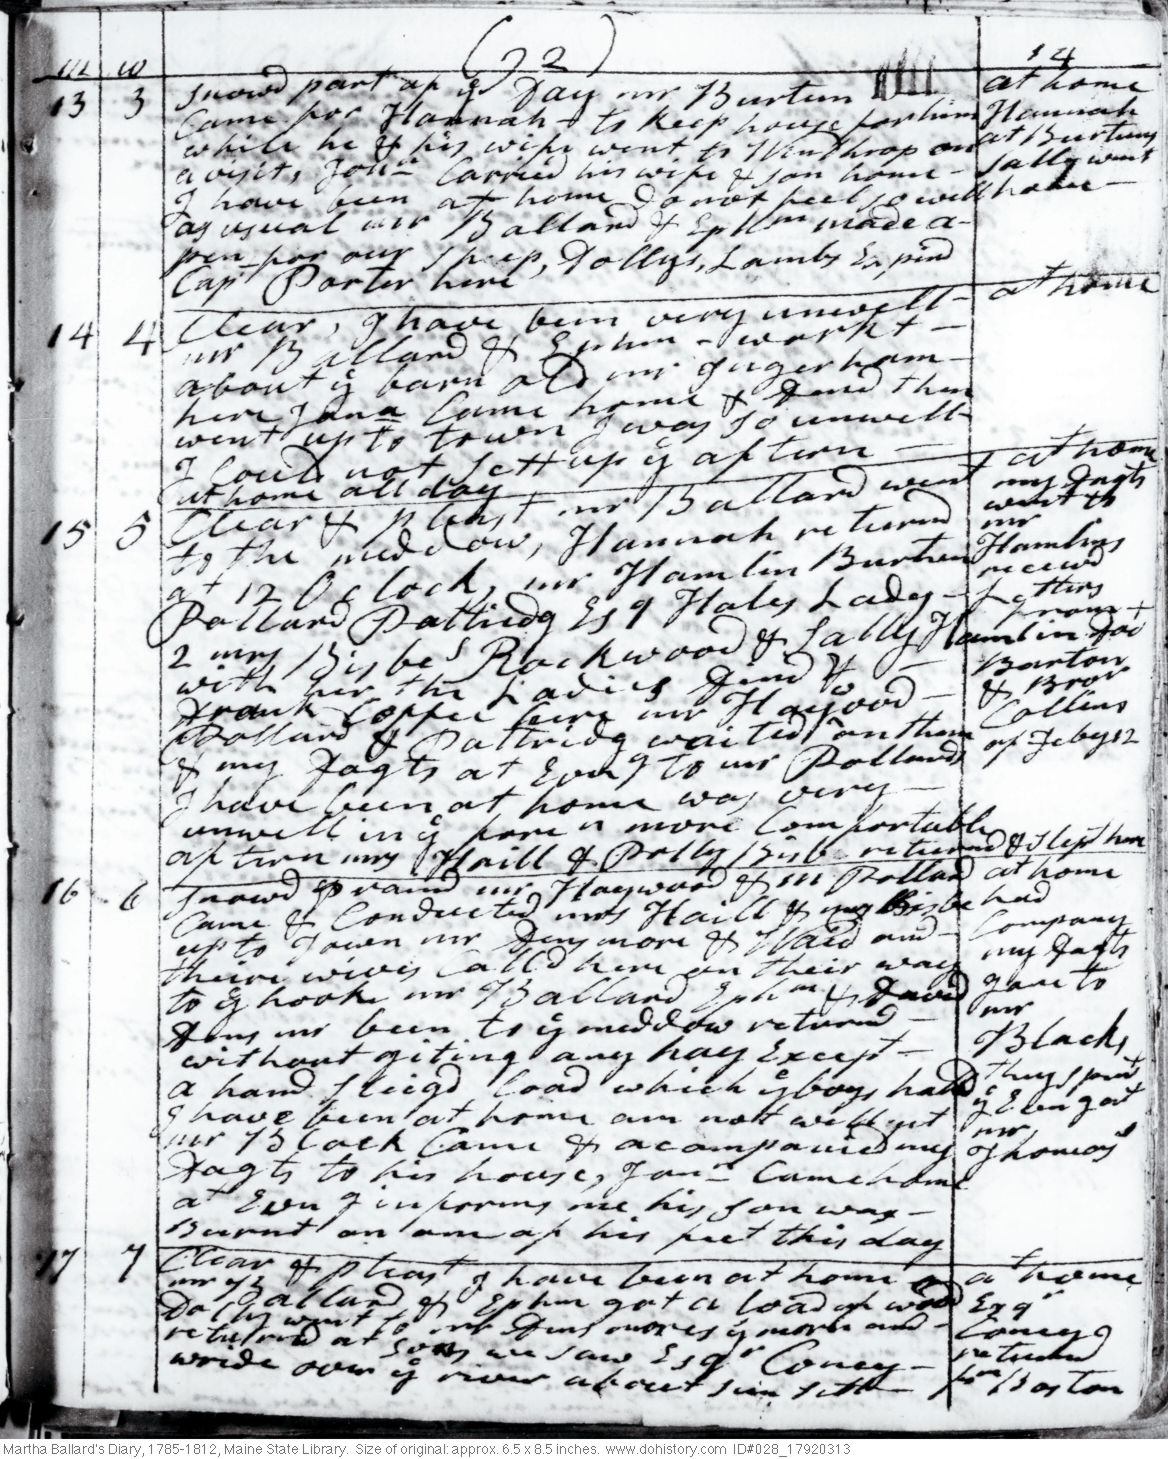 (22) 14
m w
13 3 Snowd part of ye Day mr Burtun at home
Came for Hannah to keep house for him Hannah
while he & his wife went to Winthrop on at Burtuns
a visit, Jonn Carried his wife & son home - Sally went
I have been at home do not feel so well home -
as usual mr Ballard & Ephm made a-
pen for our sheep, Dollys, Lambs Expird
Capt Porter here
14 4 Clear, I have been very unwell - at home
mr Ballard & Ephm - workt -
about ye barn old mr Ingerham -
here Jona Came home & dind then
went up to town I was so unwell
I Could not sett up ye aftern -
at home all day
15 5 Clear & pleast mr Ballard went at home
to the meddow, Hannah returnd my dagts
at 12 O Clock, mr Hamlin Burtun went to
Pollard Pattridg Esq Hales Lady - mr
2 mrs Bisbe's Rockwood & Sally Hamlin Hamlins
with her the Ladies dind & - receivd
drank Coffee here mr Haywood - Letters
Pollard & Pattridg waited on them from
& my dagts at Evng to mr Pollards Doc
I have been at home was very - Barton
unwell in ye fore n more Comfortable & Bror
aftern mrs Haill & Polly Bisbe returnd & slept here Collins
of Feby 12
16 6 Snowd & raind mr Haywood & m Pollard at home
Came & Conducted mrs Haill & Bisbe had
up to Town mr Densmore & Waid and - Company
theire wives Calld here on their way my dagts
to ye hook mr Ballard Ephm & David gone to
Dens mr been to ye meddow returnd - mr
without giting any hay Except - Blacks
a hand sleigd load which ye boys hald they spent
I have been at home am not well yet ye Evn gat
mr Black Came & acompanied my mr
dagts to his house, Jonn Came home Thomas's
at Evn g informs me his son was -
Burnt on one of his feet this day
17 7 Clear & pleast I have been at home at home
mr Ballard & Ephm got a load of wood Esqr
Dolly went to mr Densmores ye morn and - Coney
returnd at Son we saw Esqr Coney - returnd
wride over ye river about sun sett - fm Boston
Martha Ballard's Diary, 1785-1812, Maine State Library. Size of original: approx. 6.5 x 8.5 inches. www.dohistory.com ID#028_17920313